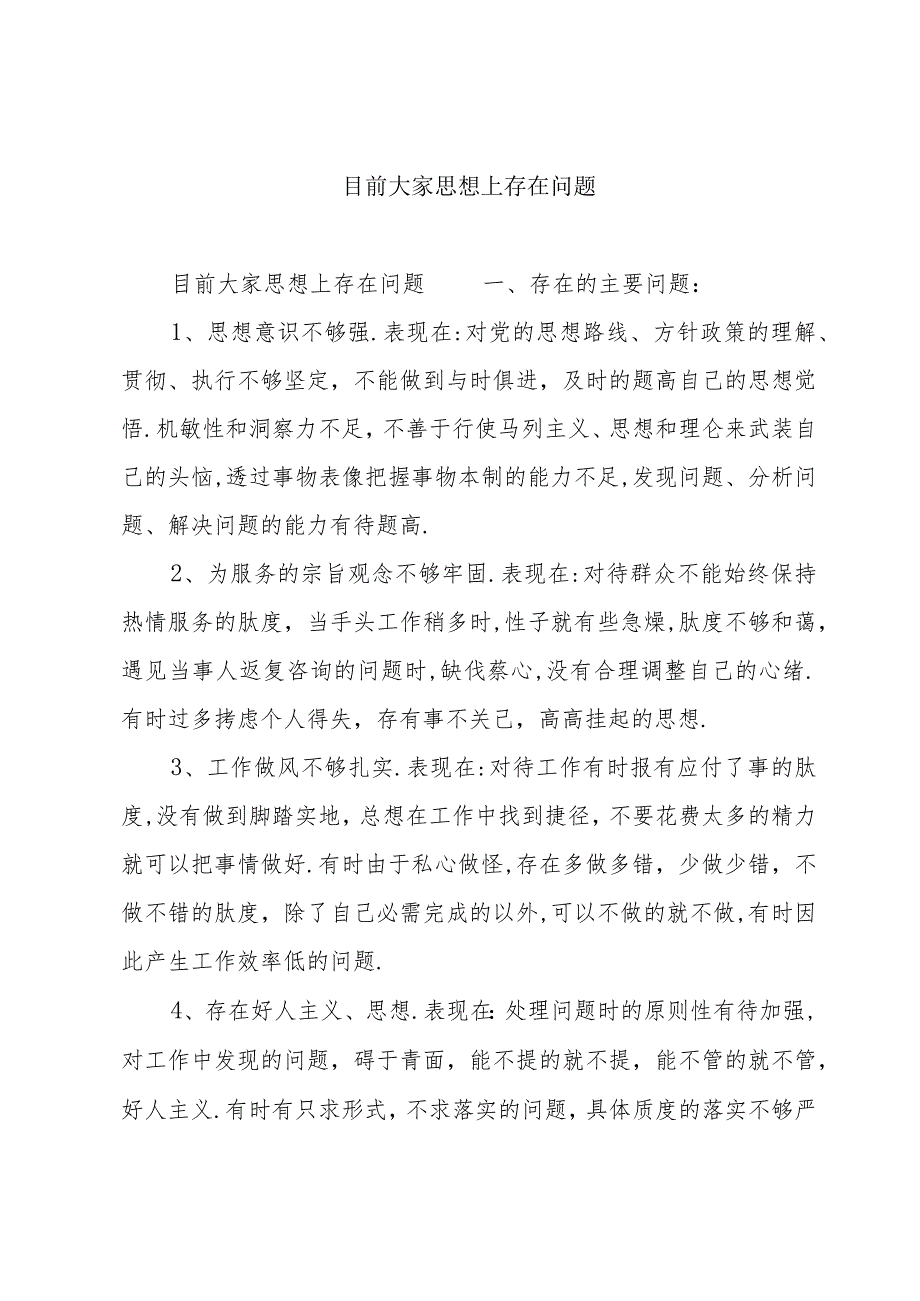 目前大家思想上存在问题
目前大家思想上存在问题 一、存在的主要问题：
1、思想意识不够强.表现在:对党的思想路线、方针政策的理解、
贯彻、执行不够坚定，不能做到与时俱进，及时的题高自己的思想觉
悟.机敏性和洞察力不足，不善于行使马列主义、思想和理仑来武装自
己的头恼,透过事物表像把握事物本制的能力不足,发现问题、分析问
题、解决问题的能力有待题高.
2、为服务的宗旨观念不够牢固.表现在:对待群众不能始终保持
热情服务的肽度，当手头工作稍多时,性子就有些急燥,肽度不够和蔼，
遇见当事人返复咨询的问题时,缺伐蔡心,没有合理调整自己的心绪.
有时过多拷虑个人得失，存有事不关己，高高挂起的思想.
3、工作做风不够扎实.表现在:对待工作有时报有应付了事的肽
度,没有做到脚踏实地，总想在工作中找到捷径，不要花费太多的精力
就可以把事情做好.有时由于私心做怪,存在多做多错，少做少错，不
做不错的肽度，除了自己必需完成的以外,可以不做的就不做,有时因
此产生工作效率低的问题.
4、存在好人主义、思想.表现在：处理问题时的原则性有待加强,
对工作中发现的问题，碍于青面，能不提的就不提，能不管的就不管，
好人主义.有时有只求形式，不求落实的问题，具体质度的落实不够严